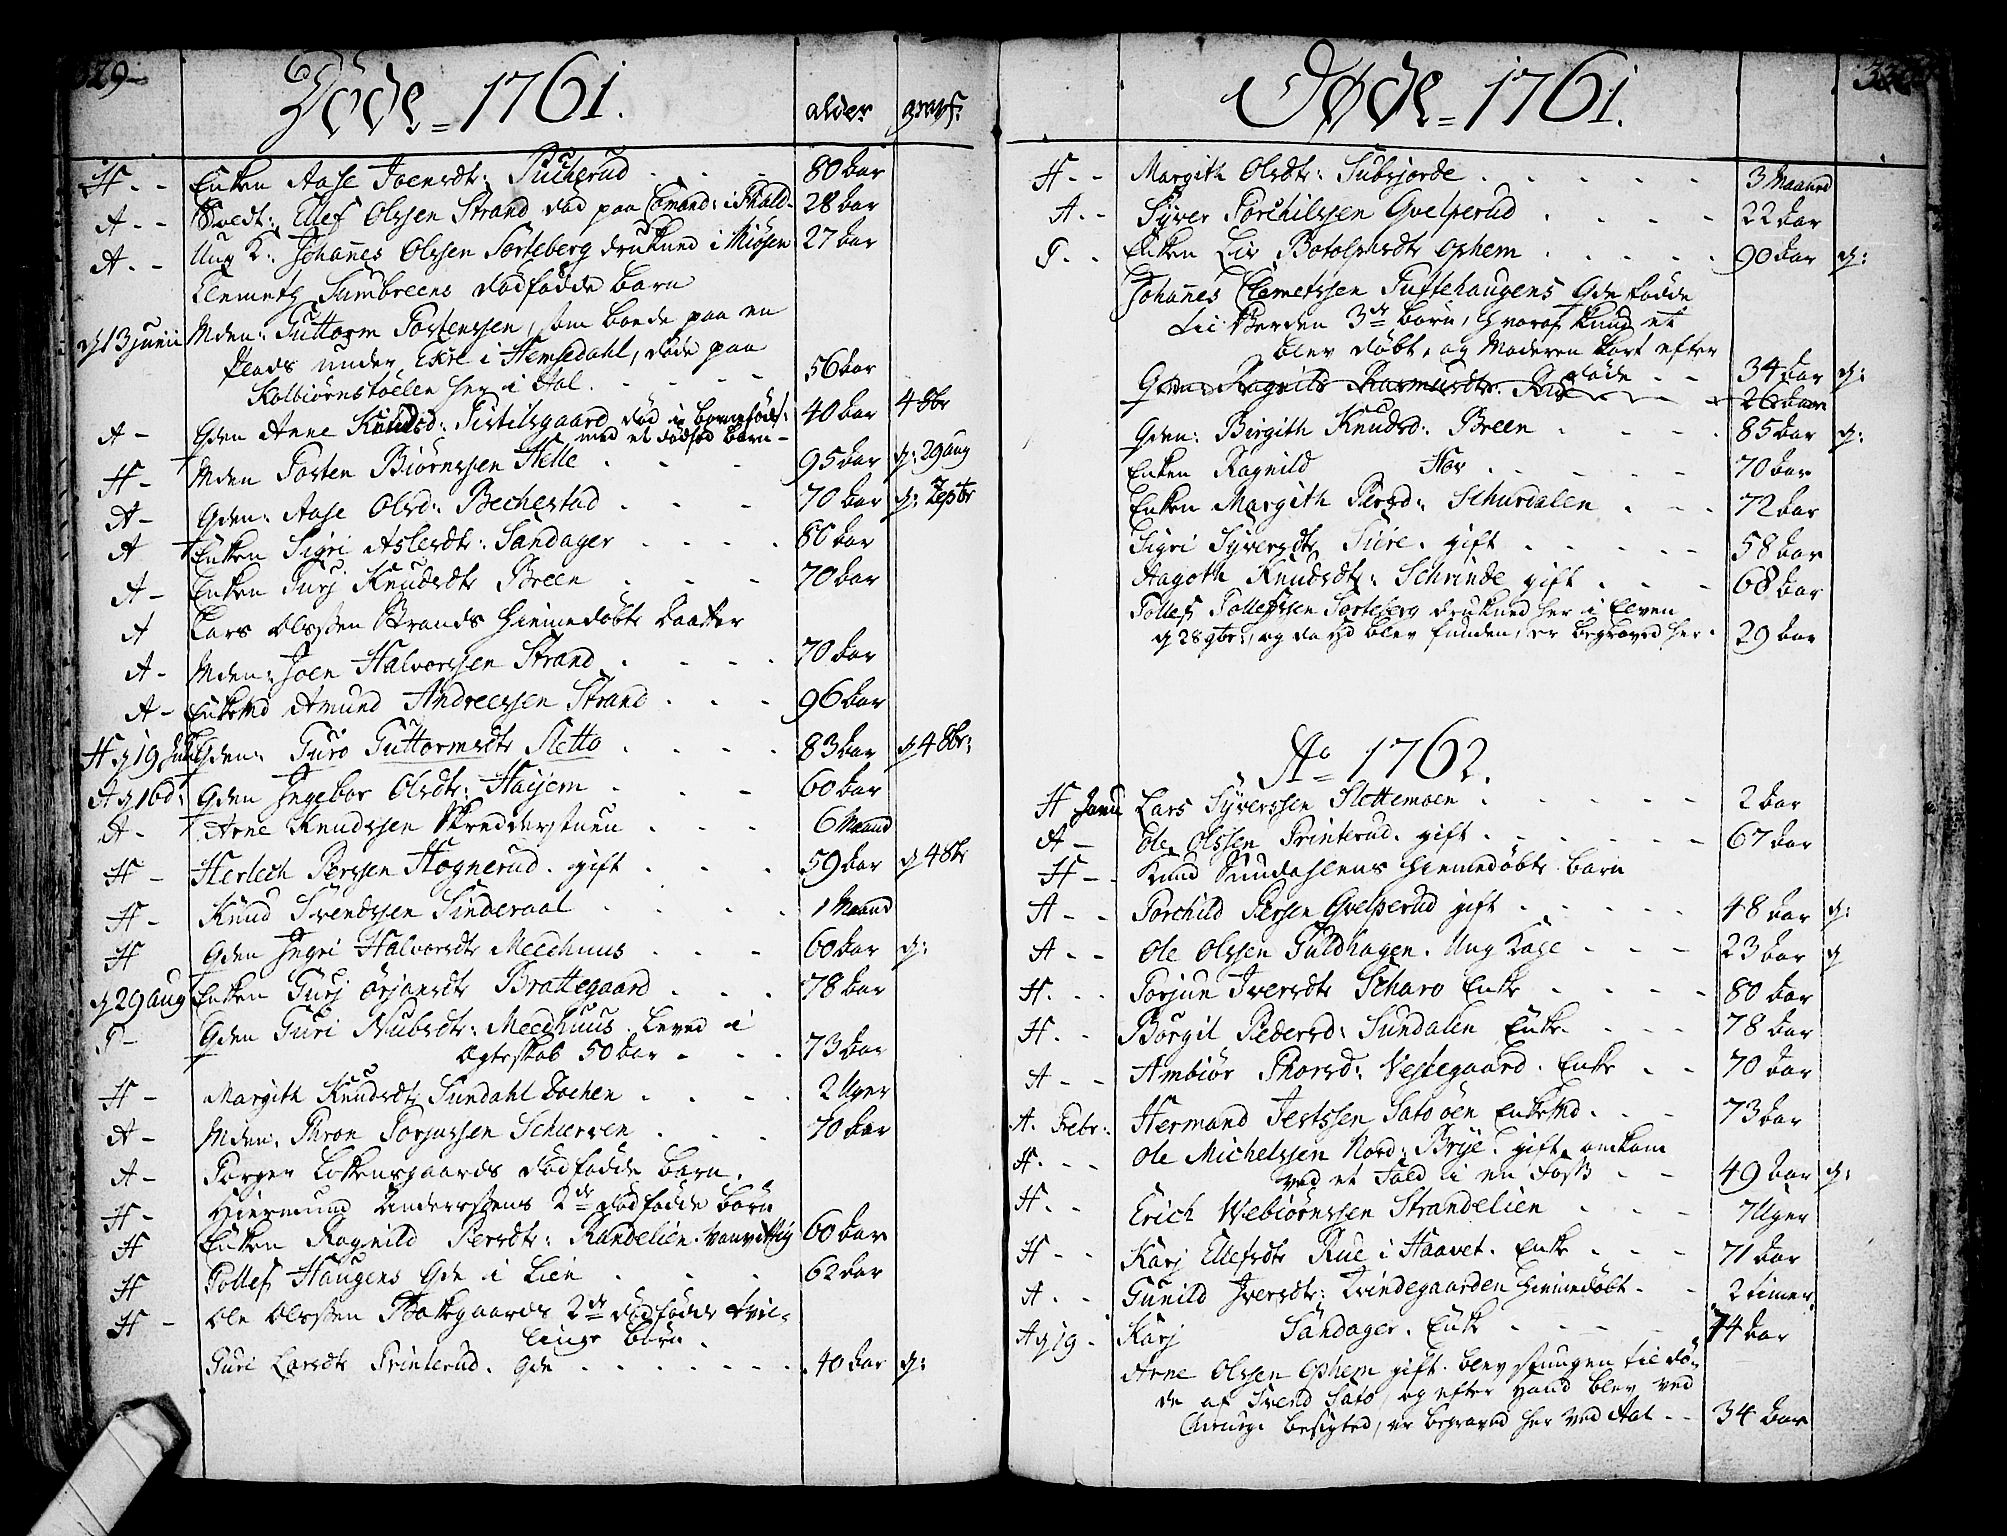 329
Døde 1761.
alder grafv:
H - - Enken Aase Joensdt: Pucherud 80 aar
A - - Soldt: Ellef Olssen Strand død paa Comand: i Frald- 28 aar
A - - Ung K: Johannes Olssen Sorteberg drukned i Miøsen 27 aar
Clemeth Sumbreens dødfødde barn
d 13 junii Mden: Guttorm Tostenssen, som boede paa en
Plads under Ekre i Hemsedahl, døde paa
Kolbiørnstøelen her i Aal 56 aar
A - Gden Anne Knudsd: Tistelsgaard død i barnefødsl: 40 aar 4 8br
med et dødfød barn -
H - Mden Tosten Biørnssen Helle 95 aar d: 29 aug
A - Gden: Aase Olsd: Bechestad 70 aar d: 7eptr
A Enken Sigri Aslesdtr: Sandager 86 aar
A - Enken Turj Knudsdtr Breen 70 aar
A Lars Olssen Strands hiemmedøbte daatter
A - Mden: Joen Halvorssen Strand 70 aar
A - EnkeMd Amund Andreessen Strand 96 aar
H d 19 Gden: Guro Guttormsdtr Sletto 83 aar d 4 8br:
A d 16 d: Gden Ingebor Olsdtr: Haijem 60 aar
A - Arne Knudssen Skredderstuen 6 Maand
H - Herlech Perssen Hognerud. gift 59 aar d 4 8br
H - Knud Svendssen Sinderaal 1 Maand
H Gden Ingri Halvorsdtr Meedhuus 60 aar d:
d 29 aug Enken Turj Ørjansdtr Brattegaard 78 aar
T - Gden Guri Nubsdtr: Meedhuus. leved i
Ægteskab 50 aar 73 aar
H - Margith Knudsdtr Sundahl Bochen 2 Uger
A - Mden: Thron Torjussen Schurven 70 aar
A - Torger Løkensgaards dødfødde barn.
H - Hiermund Underssens 2de dødfødde børn
H Enken Ragnild Persdtr: Randelien. Vanvittig 60 aar
H Tollef Haugens Gde i Lien 62 aar
H - Ole Olssen Bakkegaards 2de dødfødde tvil-
linge børn.
Guri Larsdtr Trinterud. Gde 40 aar d:
330
Døde 1761.
H - - Margith Olsdt: Subsjorde 3 Maaned
A - - Syver Torchilssen Gvelperud 22 aar
T - - Enken Liv Botolphsdtr Ophem 90 aar d:
Johannes Clemetssen Tuftehaugens Gde fødde
til Verden 3de børn, hvoraf kund et
blev døbt, og Moderen kort efter
døde - - 34 aar d:
Gden Ragnild Rasmusdtr. 26 aar
Gden: Birgith Knudsd: Breen 85 aar d:
Enken Ragnild Hov 70 aar
Enken Margith Persd: Schurdalen 72 aar
Sigri Syversdtr Sure. gift 58 aar
Aagoth Knudsdtr: Schrinde gift 68 aar
Tollef Tollefssen Sorteberg druknede her i Elven
d 28 9br:, og da hd blev funden, er begraved her. 29 aar
Ao 1762.
H Janu Lars Syverssen Slettemoen 2 aar
A - Ole Olssen Trinterud. gift 67 aar
H - - Knud Sundahlens hiemmedøbte barn
A - - Torchild Persen Gvelperud gift 48 aar d:
A - - Ole Olssen Guldhagen. Ung Karl 23 aar d
H - - Torjun Iversdtr Scharo Enke 80 aar
H - - Børgil Pedersd: Sundalen Enke 78 aar
A - - Ambiør Thorsd: Vestegaard. Enke 70 aar
A. Febr: Hermand Jertssen Satoøen EnkeMd 73 aar
H - - Ole Michelssen Nord: Brye. gift. omkom
ved et Fald i en Foss 49 aar d:
H - - Erich Webiørnssen Strandelien 7 Uger
H - - Karj Ellefsdtr Rue i Haavet. Enke 71 aar
A - - Gunild Iversdtr: Tvindegaarden hiemmedøbt 2 timer
A d 19 - Karj Sandager. Enke 74 aar
Arne Olssen Ophem gift. blev stungen til dø-
de af Svend Sato, og efter Hand blev ved
Chirurgi besigted, er begraved her ved Aal - - 34 aar